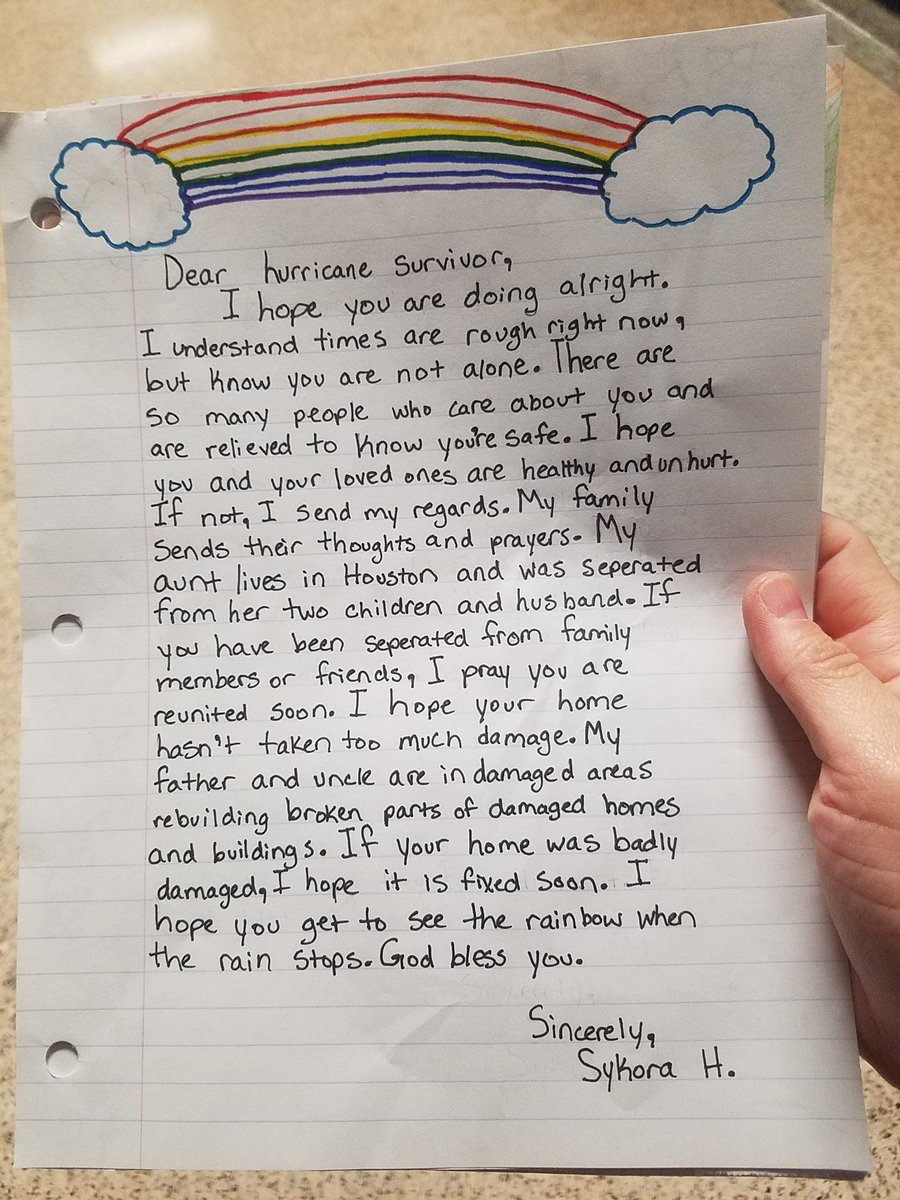 Dear hurricane survivor,
I hope you are doing alright.
I understand times are rough right now,
but know you are not alone. There are
so many people who care about you and
are relieved to know you're safe. I hope
you and your loved ones are healthy and unhurt.
If not, I send my regards. My family
sends their thoughts and prayers. My
aunt lives in Houston and was seperated
from her two children and husband. If
you have been seperated from family
members or friends, I pray you are
reunited soon. I hope your home
hasn't taken too much damage. My
father and uncle are in damaged areas
rebuilding broken parts of damaged homes
and buildings. If your home was badly
damaged, I hope it is fixed soon. I
hope you get to see the rainbow when
the rain stops. God bless you.
Sincerely,
Sykora H.